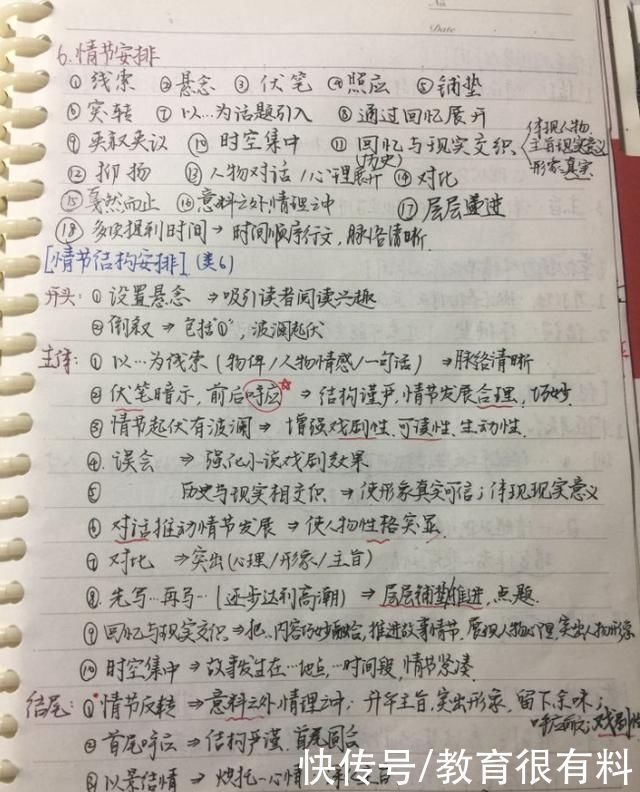 No.
Date
6.情节安排
①线索 ②悬念 ③伏笔 ④照应 ⑤铺垫
⑥突转 ⑦以…为话题引入 ⑧通过回忆展开
⑨夹叙夹议 ⑩时空集中 ⑪回忆与现实交织 体现人物
(历史) 主旨现实意义
形象真实
⑫抑扬 ⑬人物对话/心理展开 ⑭对比
⑮戛然而止 ⑯意料之外,情理之中 ⑰层层递进
⑱多次提到时间→时间顺序行文,脉络清晰
[情节结构安排](类6)
开头:①设置悬念⇒吸引读者阅读兴趣
②倒叙⇒包括"①",波澜起伏
主体:①以…为线索(物件/人物情感/一句话)⇒脉络清晰
②伏笔暗示,前后呼应☆⇒结构谨严,情节发展合理,巧妙.
③情节起伏有波澜⇒增强戏剧性、可读性、生动性.
④误会⇒强化小说戏剧效果
⑤历史与现实相交织⇒使形象真实可信;体现现实意义
⑥对话推动情节发展⇒使人物性格突显.
⑦对比⇒突出(心理/形象/主旨)
⑧先写…再写…(逐步达到高潮)⇒层层铺垫推进,点题.
⑨回忆与现实交织⇒把…内容巧妙融合,推进故事情节,展现人物心理,突出人物形象
⑩时空集中⇒故事发生在…地点,…时间段,情节紧凑.
结尾:①情节反转⇒意料之外,情理之中;升华主旨,突出形象,留下余味;
呼应前文;戏剧性
②首尾呼应⇒结构严谨,首尾圆合
③以景结情⇒烘托…心情
快传号/教育很有料